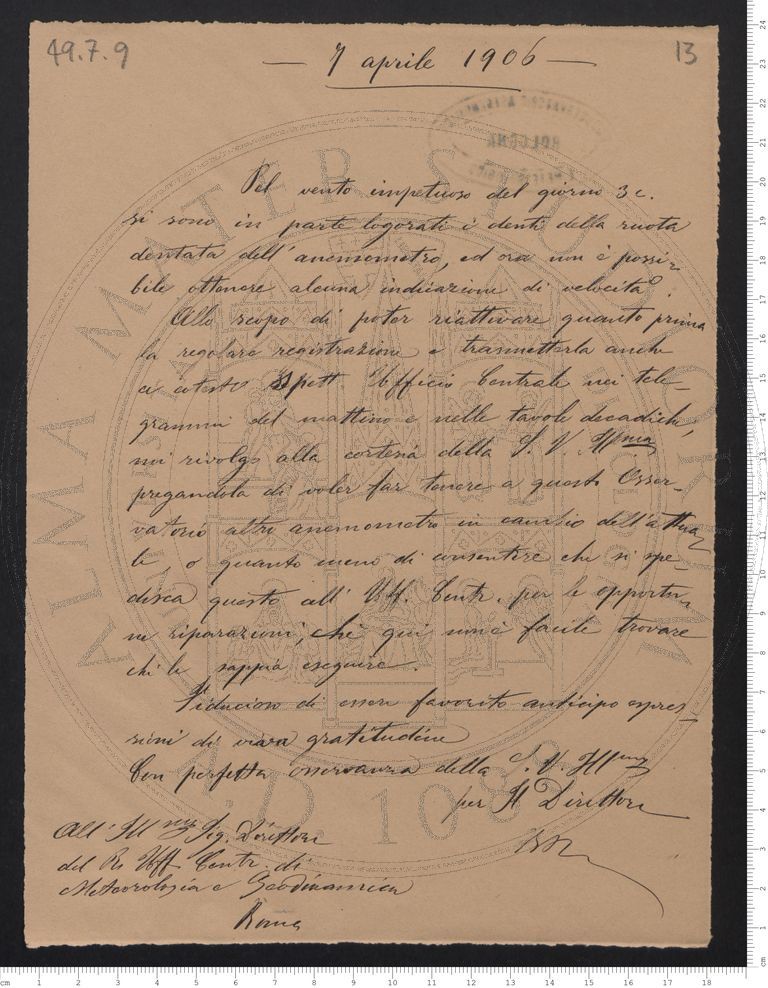 49.7.9
13
— 7 aprile 1906 —
Pel vento impetuoso del giorno 3 c.
si sono in parte logorati i denti della ruota
dentata dell'anemometro, ed ora non è possi-
bile ottenere alcuna indicazione di velocità.
Allo scopo di poter riattivare quanto prima
la regolare registrazione e trasmetterla anche
a cotesto Spett. Ufficio Centrale nei tele-
grammi del mattino e nelle tavole decadiche,
mi rivolgo alla cortesia della S. V. Illma
pregandola di voler far tenere a questo Osser-
vatorio altro anemometro in cambio dell'attua-
le, o quanto meno di consentire che si spe-
disca questo all' Uff. Centr. per le opportu-
ne riparazioni, chè qui non è facile trovare
chi le sappia eseguire.
Fiducioso di essere favorito anticipo espres-
sioni di viva gratitudine
Con perfetta osservanza della S. V. Illma
per Il Direttore
All' Illmo Sig. Direttore
del R. Uff. Centr. di
Meteorologia e Geodinamica
Roma
ALMA MATER STUDIORUM
A.D. 1088
BOLOGNA